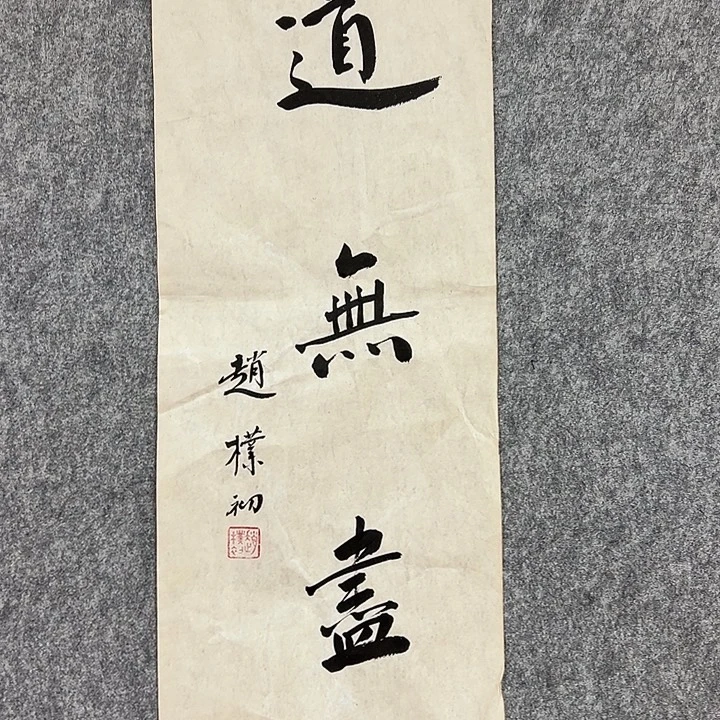 道無盡
趙樸初